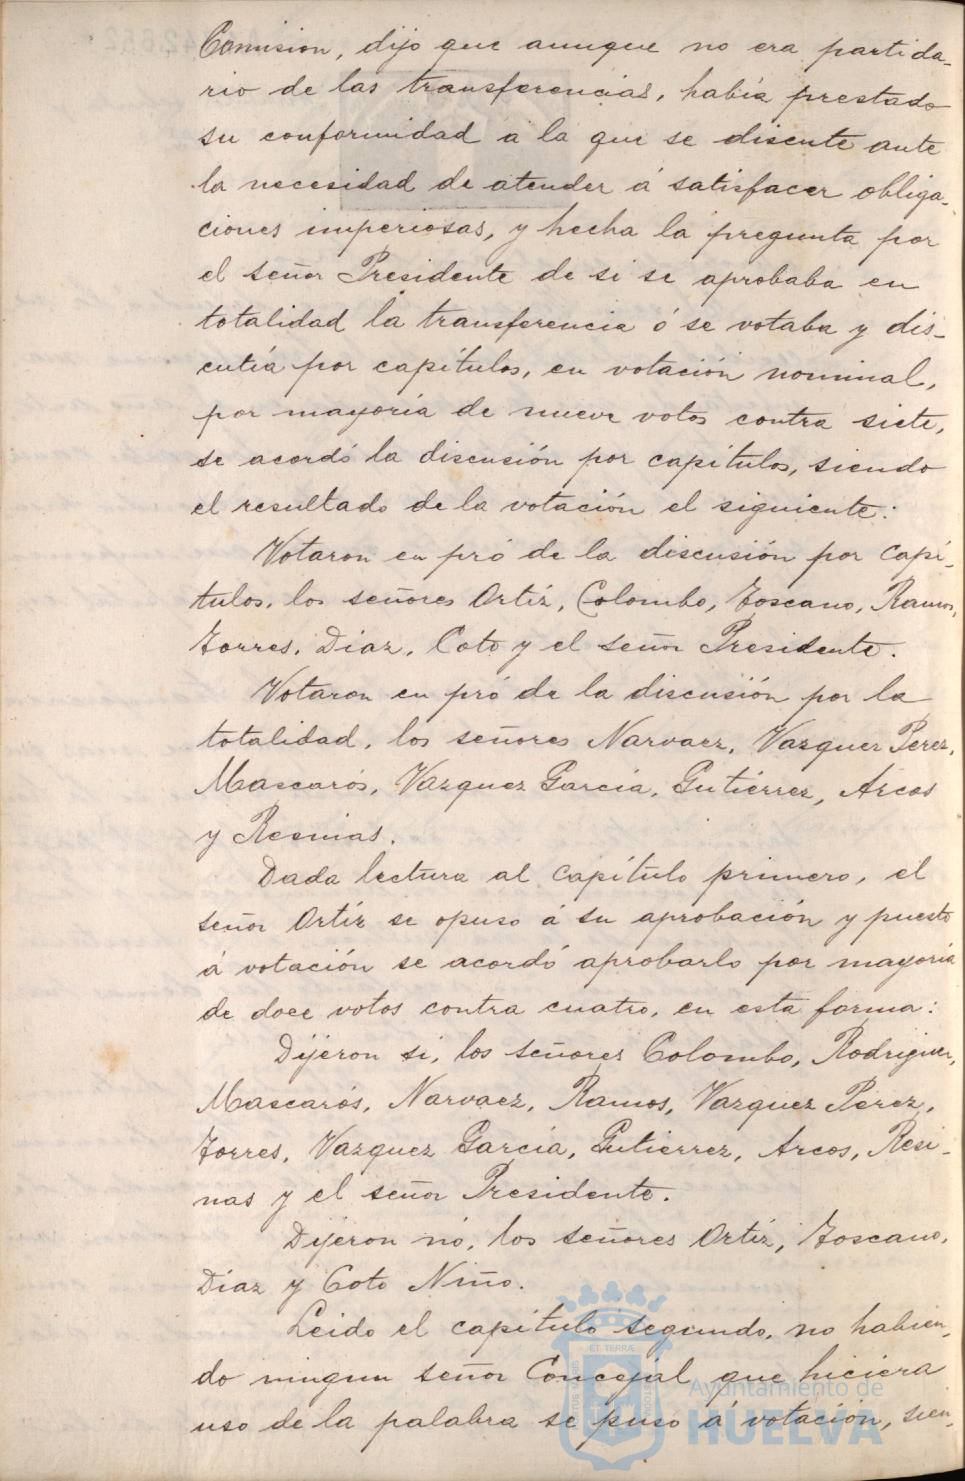 Comision, dijo que aunque no era partida-
rio de las transferencias, había prestado
su conformidad a la que se discute ante
la necesidad de atender á satisfacer obliga-
ciones imperiosas, y hecha la pregunta por
el señor Presidente de si se aprobaba en
totalidad la transferencia ó se votaba y dis-
cutía por capítulos, en votación nominal,
por mayoría de nueve votos contra siete,
se acordó la discusión por capitulos, siendo
el resultado de la votación el siguiente:
Votaron en pró de la discusión por capí-
tulos, los señores Ortíz, Colombo, Toscano, Ramos,
Torres, Díaz, Coto y el señor Presidente.
Votaron en pró de la discusión por la
totalidad, los señores Narvaez, Vazquez Perez,
Mascarós, Vazquez García, Gutiérrez, Arcos
y Resinas.
Dada lectura al capítulo primero, el
señor Ortíz se opuso á su aprobación y puesto
á votación se acordó aprobarlo por mayoría
de doce votos contra cuatro, en esta forma:
Dijeron si, los señores Colombo, Rodriguez,
Mascarós, Narvaez, Ramos, Vazquez Perez,
Torres, Vazquez García, Gutierrez, Arcos, Resi-
nas y el señor Presidente.
Dijeron nó, los señores Ortíz, Toscano,
Díaz y Coto Niño.
Leido el capítulo segundo, no habien-
do ningun señor Concejal que hiciera
uso de la palabra se puso á votación, sien-
ET TERRÆ
Ayuntamiento de
HUELVA